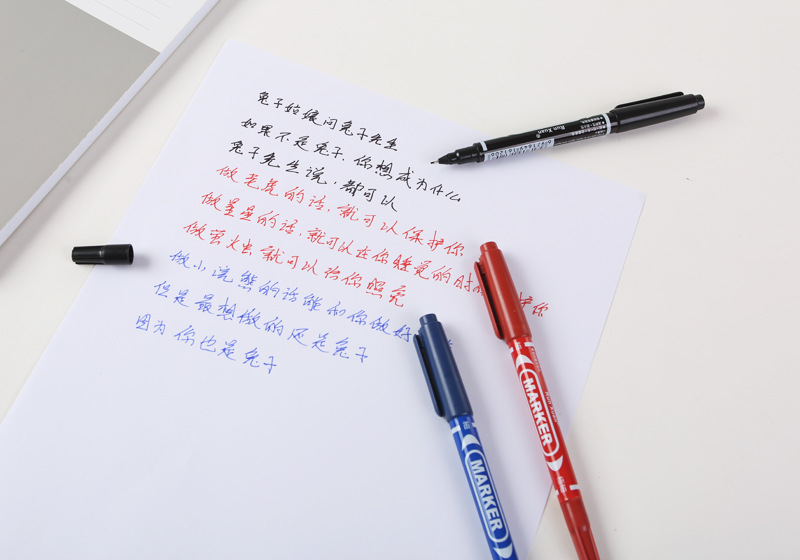 兔子姑娘问兔子先生
如果不是兔子,你想成为什么
兔子先生说,都可以
做老虎的话,就可以保护你
做星星的话,就可以在你睡觉的时 护你
做萤火虫就可以给你照亮
做小浣熊的话能和你做好
但是最想做的还是兔子
因为你也是兔子
Run Xuan
MARKER
MARKER